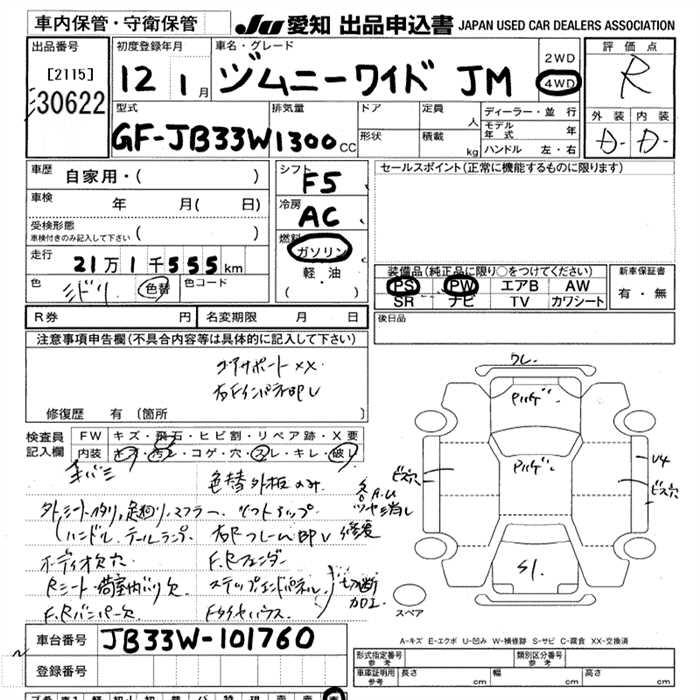 車内保管・守衛保管
JU 愛知 出品申込書 JAPAN USED CAR DEALERS ASSOCIATION
出品番号
[2115]
30622
初度登録年月
12 1月
車名・グレード
ジムニーワイド JM
2WD
4WD
評価点
R
外装 内装
D- D-
型式
GF-JB33W
排気量
1300cc
ドア
形状
定員 人
積載 kg
ディーラー・並行
モデル年式 年
ハンドル 左・右
車歴 自家用・( )
車検 年 月( 日)
受検形態
車検付きのみ記入して下さい ( )
走行 21万1千555km
色 ミドリ 色替 色コード
シフト F5
冷房 AC
燃料 ガソリン
軽・油
( ・ )
セールスポイント(正常に機能するものに限ります)
装備品(純正品に限り○をつけてください)
PS PW エアB AW
SR ナビ TV カワシート
新車保証書
有・無
後日品
R券 円 名変期限 月 日
注意事項申告欄(不具合内容等は具体的に記入して下さい)
コアサポートXX
右Fインパネ凹レ
修復歴 有 [箇所 ]
検査員記入欄
FW キズ・飛石・ヒビ割・リペア跡・X要
内装 キズ・汚レ・コゲ・穴・スレ・キレ・破レ
色替外板のみ
外シート, 足廻り, マフラー, リフトアップ
ハンドル テールランプ
右Rフレーム凹レ修復
オーディオ欠
F,Rフェンダー
Rシート・荷室内バリ欠
ステップエンドパネル
切断加工
F,Rバンパー欠
クレ
パルゲ
パルゲ
ビス穴
U4
ビス穴
S1
スペア
A-キズ E-エクボ U-凹み W-補修跡 S-サビ C-腐食 XX-交換済
車台番号 JB33W-101760
登録番号
形式指定番号 参考
類別区分番号 参考
車庫証明用 参考 長さ cm 幅 cm 高さ cm